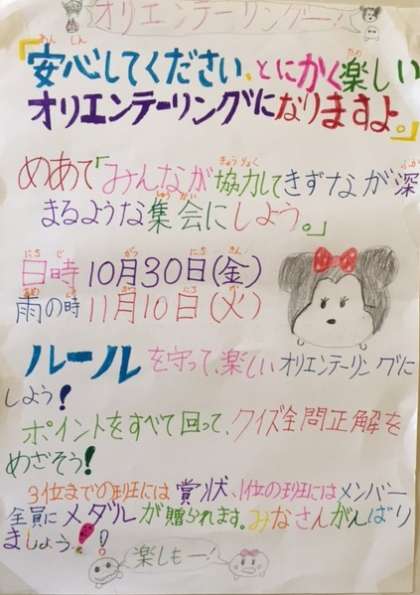 オリエンテーリングー!
『安心してください、とにかく楽しい
オリエンテーリングになりますよ。』
めあて「みんなが協力してきずなが深
まるような集会にしよう。」
日時 10月30日(金)
雨の時 11月10日(火)
ルールを守って、楽しいオリエンテーリングに
しよう!
ポイントをすべて回って、クイズ全問正解を
めざそう!
3位までの班には賞状、1位の班にはメンバー
全員にメダルが贈られます。みなさんがんばり
ましょう!!
楽しもー!